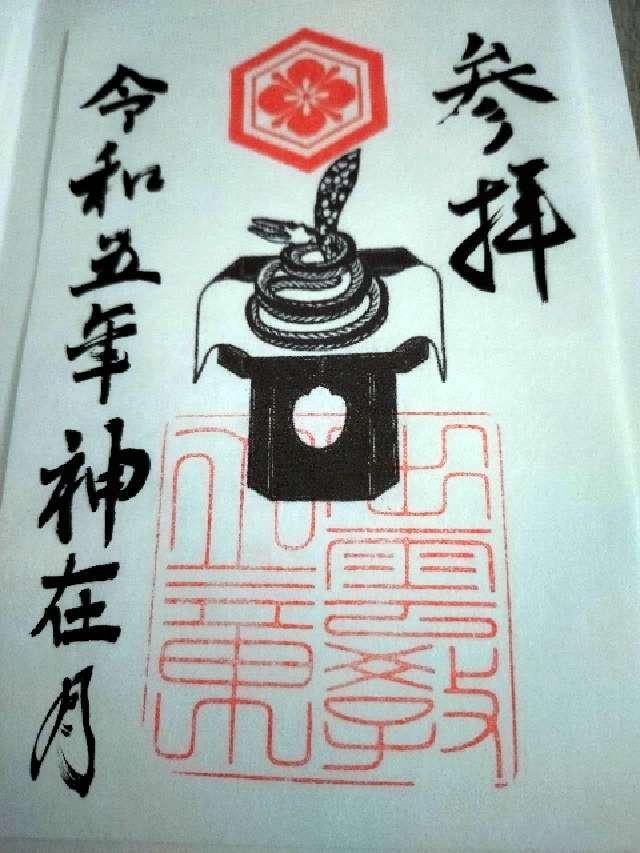 参拝
出雲教
令和五年神在月